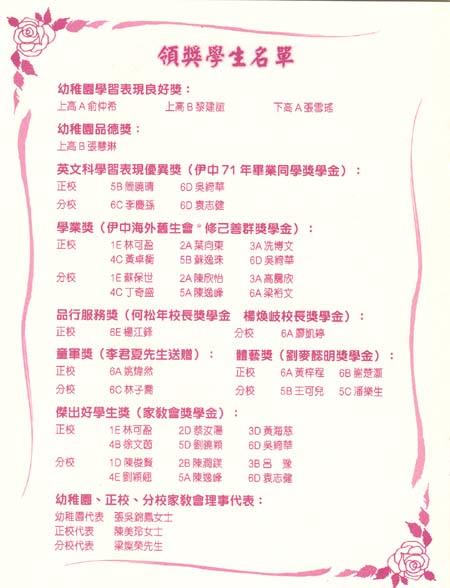 領獎學生名單
幼稚園學習表現良好獎：
上高A俞仲希 上高B黎建誼 下高A張雪瑤
幼稚園品德獎：
上高B張慧琳
英文科學習表現優異獎（伊中71年畢業同學獎學金）：
正校 5B簡曉晴 6D吳綺華
分校 6C李慶孫 6D袁志健
學業獎（伊中海外舊生會 * 修己善群獎學金）：
正校 1E林可盈 2A葉向東 3A冼博文
4C黃卓衡 5B蘇逸珠 6D吳綺華
分校 1E蘇保世 2A陳欣怡 3A高慶欣
4C丁奇盛 5A陳逸峰 6A梁裕文
品行服務獎（何松年校長獎學金 楊煥岐校長獎學金）：
正校 6E楊江鋒 分校 6A廖凱婷
童軍獎（李君夏先生送贈）： 體藝獎（劉韋懿明獎學金）：
正校 6A姚煒然 正校 6A黃梓程 6B謝楚灝
分校 6C林子喬 分校 5B王可兒 5C潘樂生
傑出好學生獎（家教會獎學金）：
正校 1E林可盈 2D蔡汝湯 3D黃海慈
4B徐文茵 5D劉曉穎 6D吳綺華
分校 1D陳俊賢 2B陳潤鎂 3B呂 豫
4E劉穎翹 5A陳逸峰 6D袁志健
幼稚園、正校、分校家教會理事代表：
幼稚園代表 張吳錦鳳女士
正校代表 陳美玲女士
分校代表 梁燦榮先生